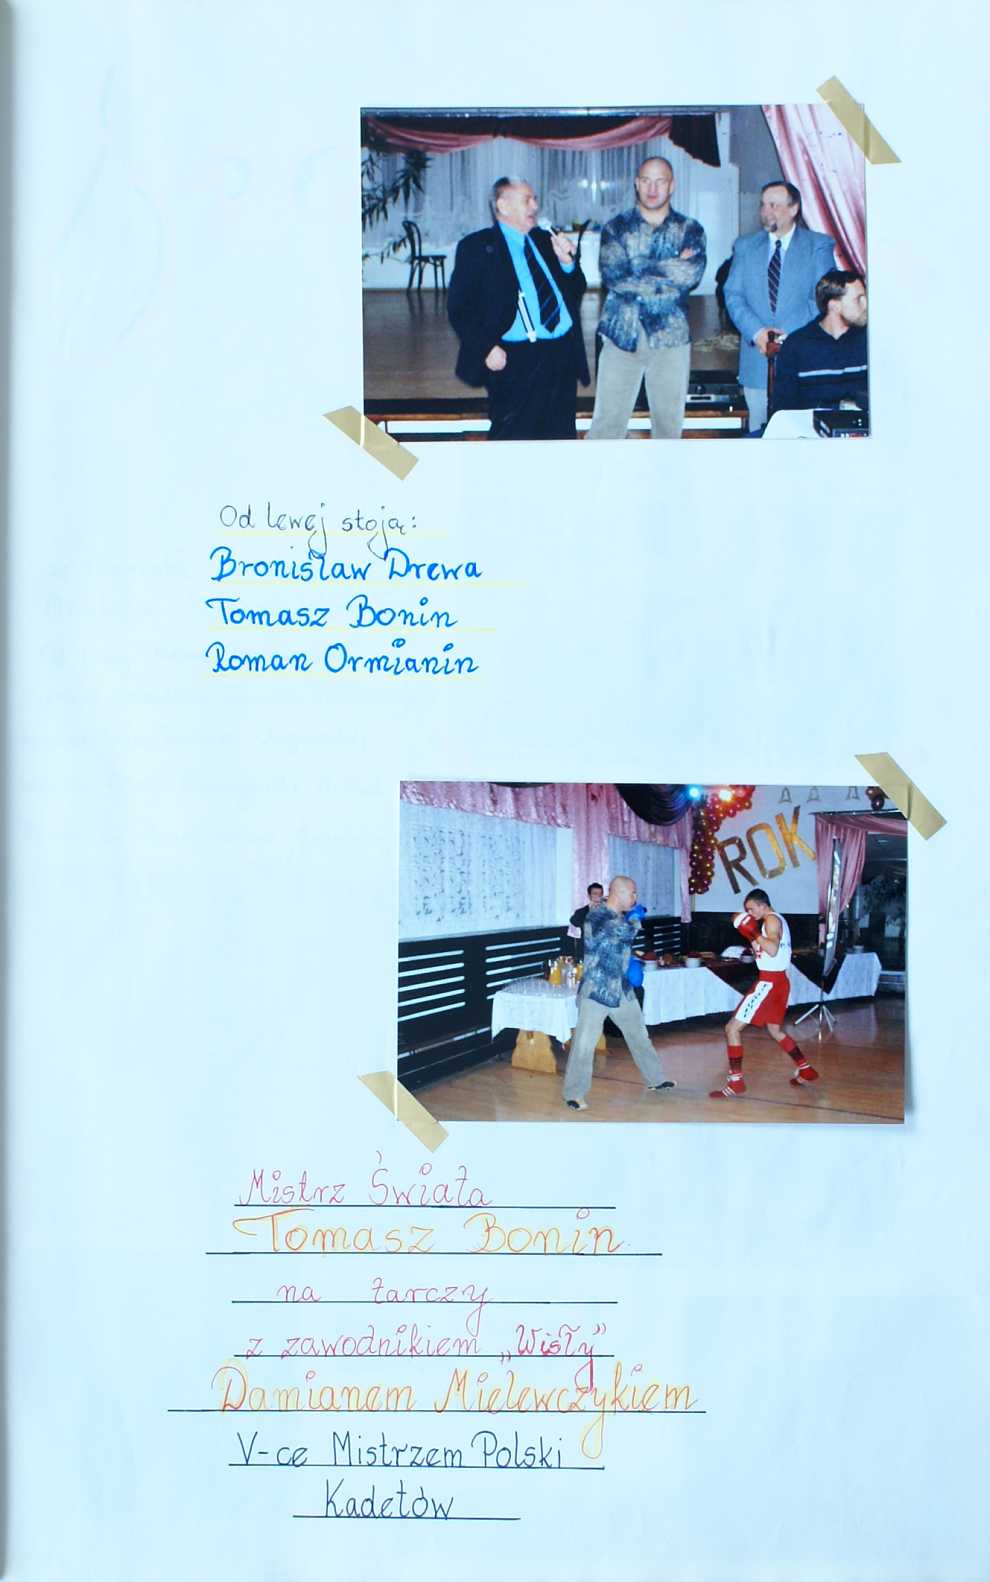 Od lewej stoją:
Bronisław Drewa
Tomasz Bonin
Roman Ormianin
ROK
Mistrz Świata
Tomasz Bonin
na tarczy
z zawodnikiem „Wisły”
Damianem Mielewczykiem
V-ce Mistrzem Polski
Kadetów